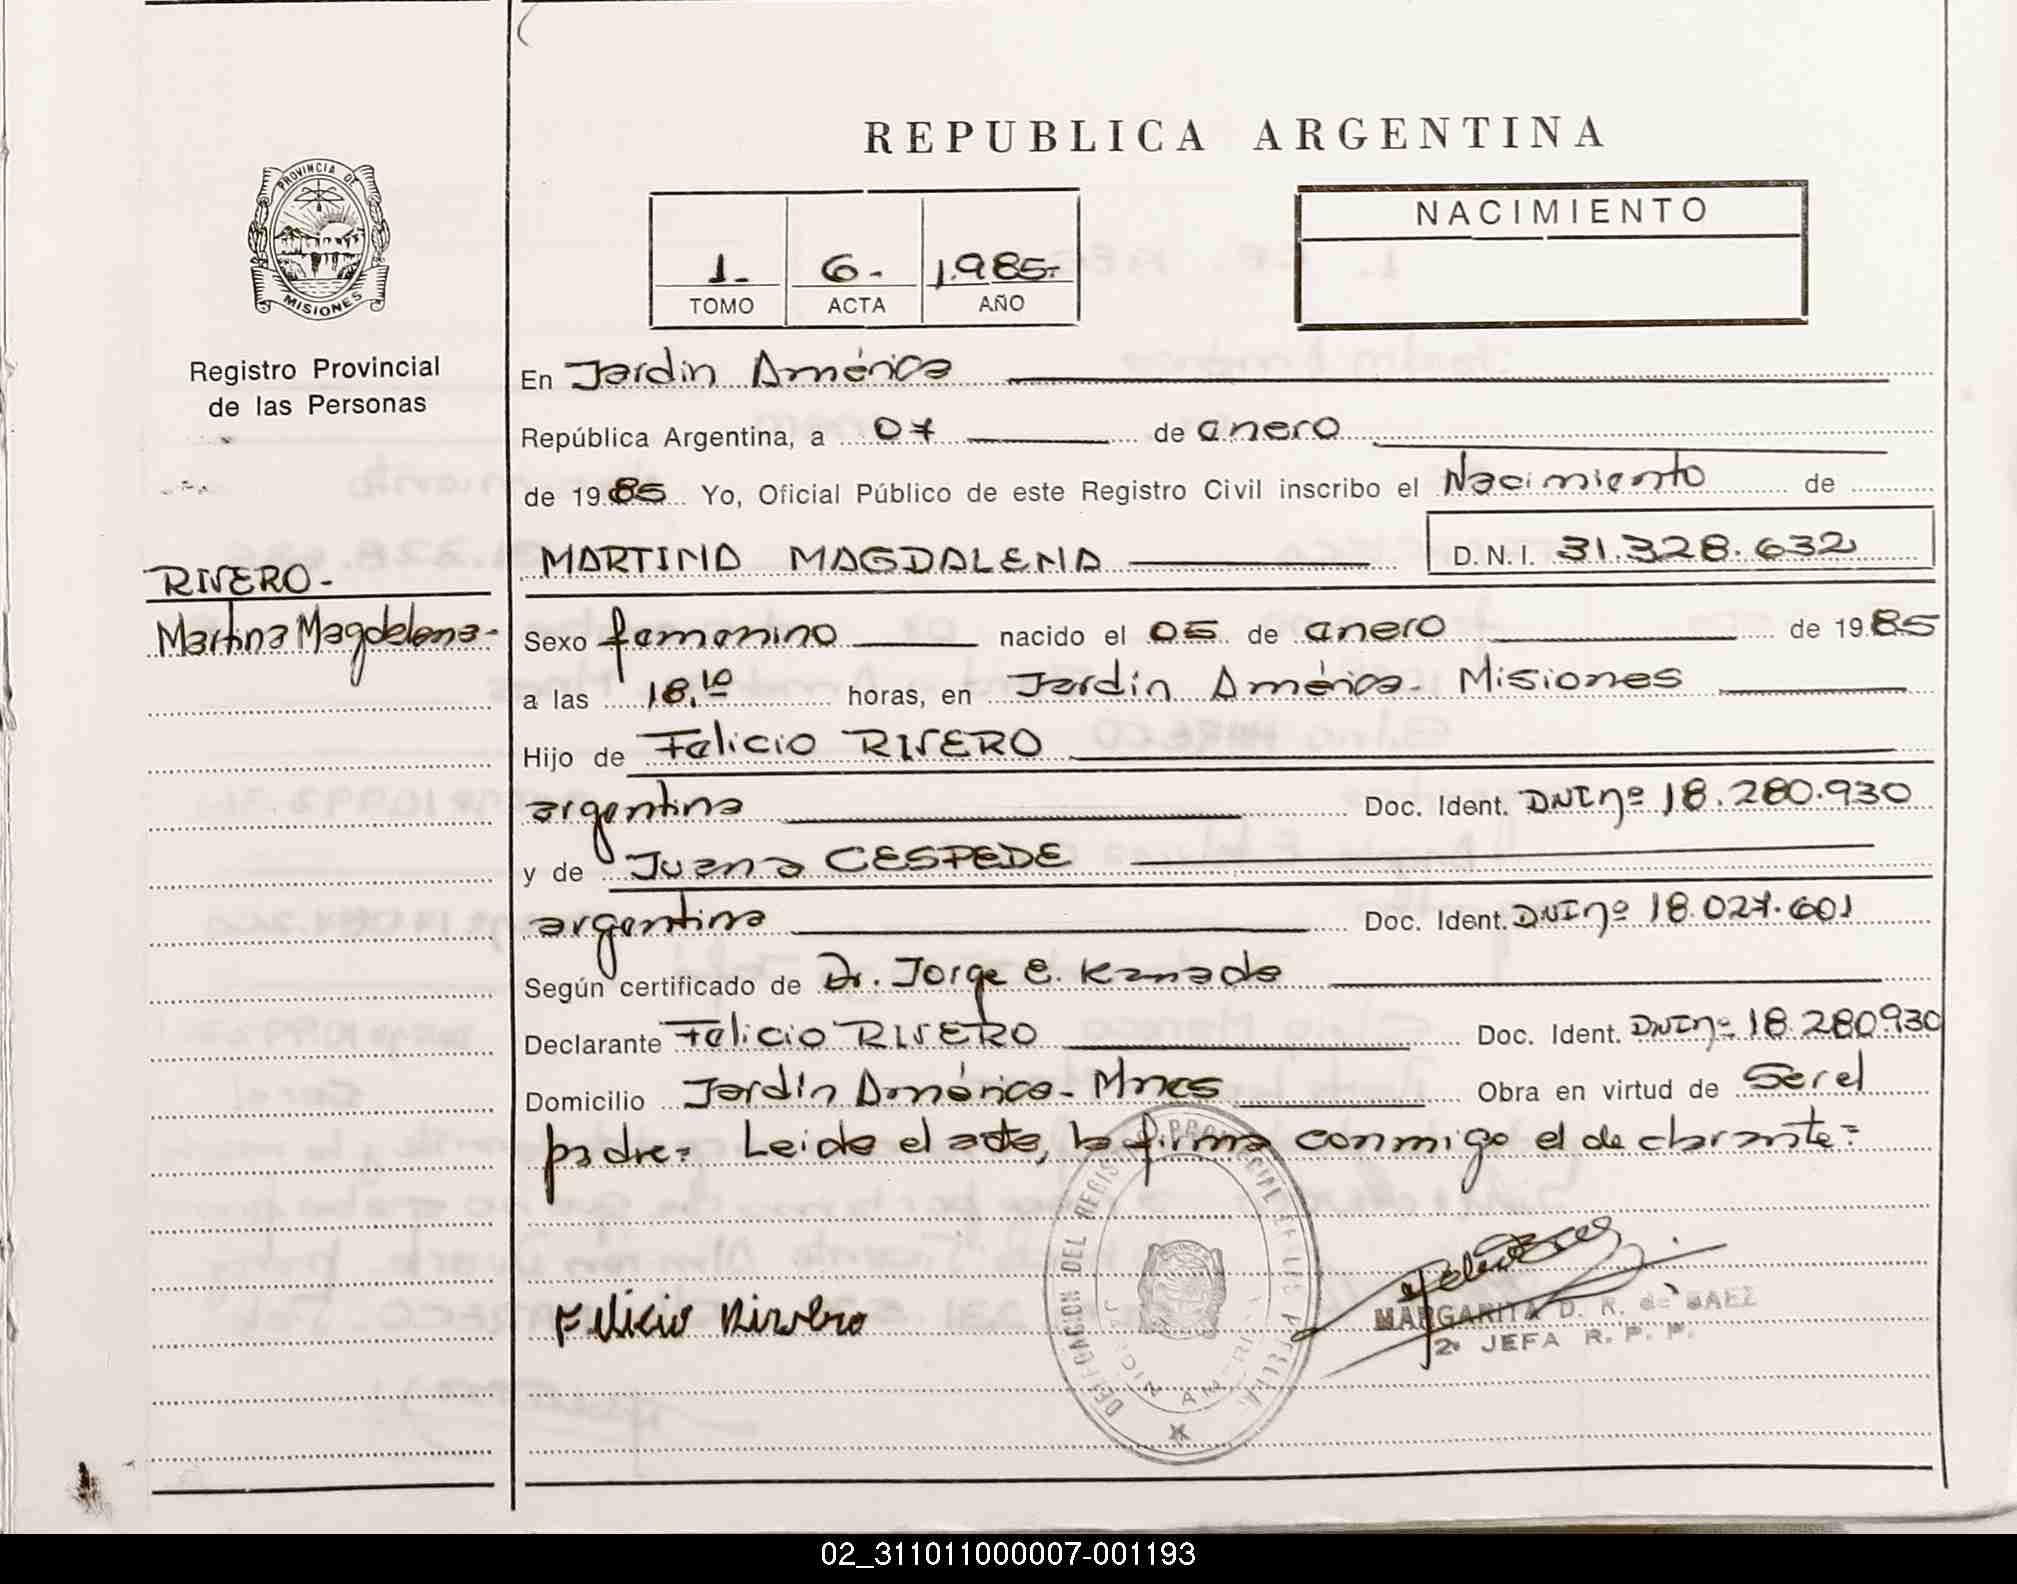 REPUBLICA ARGENTINA
PROVINCIA DE
MISIONES
Registro Provincial
de las Personas
1.- 6.- 1.985.-
TOMO ACTA AÑO
NACIMIENTO
En Jardín América
República Argentina, a 07 de enero
de 1985 Yo, Oficial Público de este Registro Civil inscribo el Nacimiento de
MARTINA MAGDALENA D.N.I. 31.328.632
RIVERO-
Martina Magdalena-
Sexo femenino nacido el 05 de enero de 1985
a las 18,10 horas, en Jardín América- Misiones
Hijo de Felicio RIVERO
argentina Doc. Ident. DNI nº 18.280.930
y de Juana CESPEDE
argentina Doc. Ident. DNI nº 18.027.601
Según certificado de Dr. Jorge E. Kanada
Declarante Felicio RIVERO Doc. Ident. DNI nº 18.280930
Domicilio Jardín América- Mnes Obra en virtud de Ser el
padre= Leida el acta, la firma conmigo el declarante=
Felicio Rivero
MARGARITA D. R. de BAEZ
2º JEFA R. P. P.
DELEGACION DEL REGISTRO PROVINCIAL DE LAS PERSONAS
JARDIN AMERICA
02_311011000007-001193